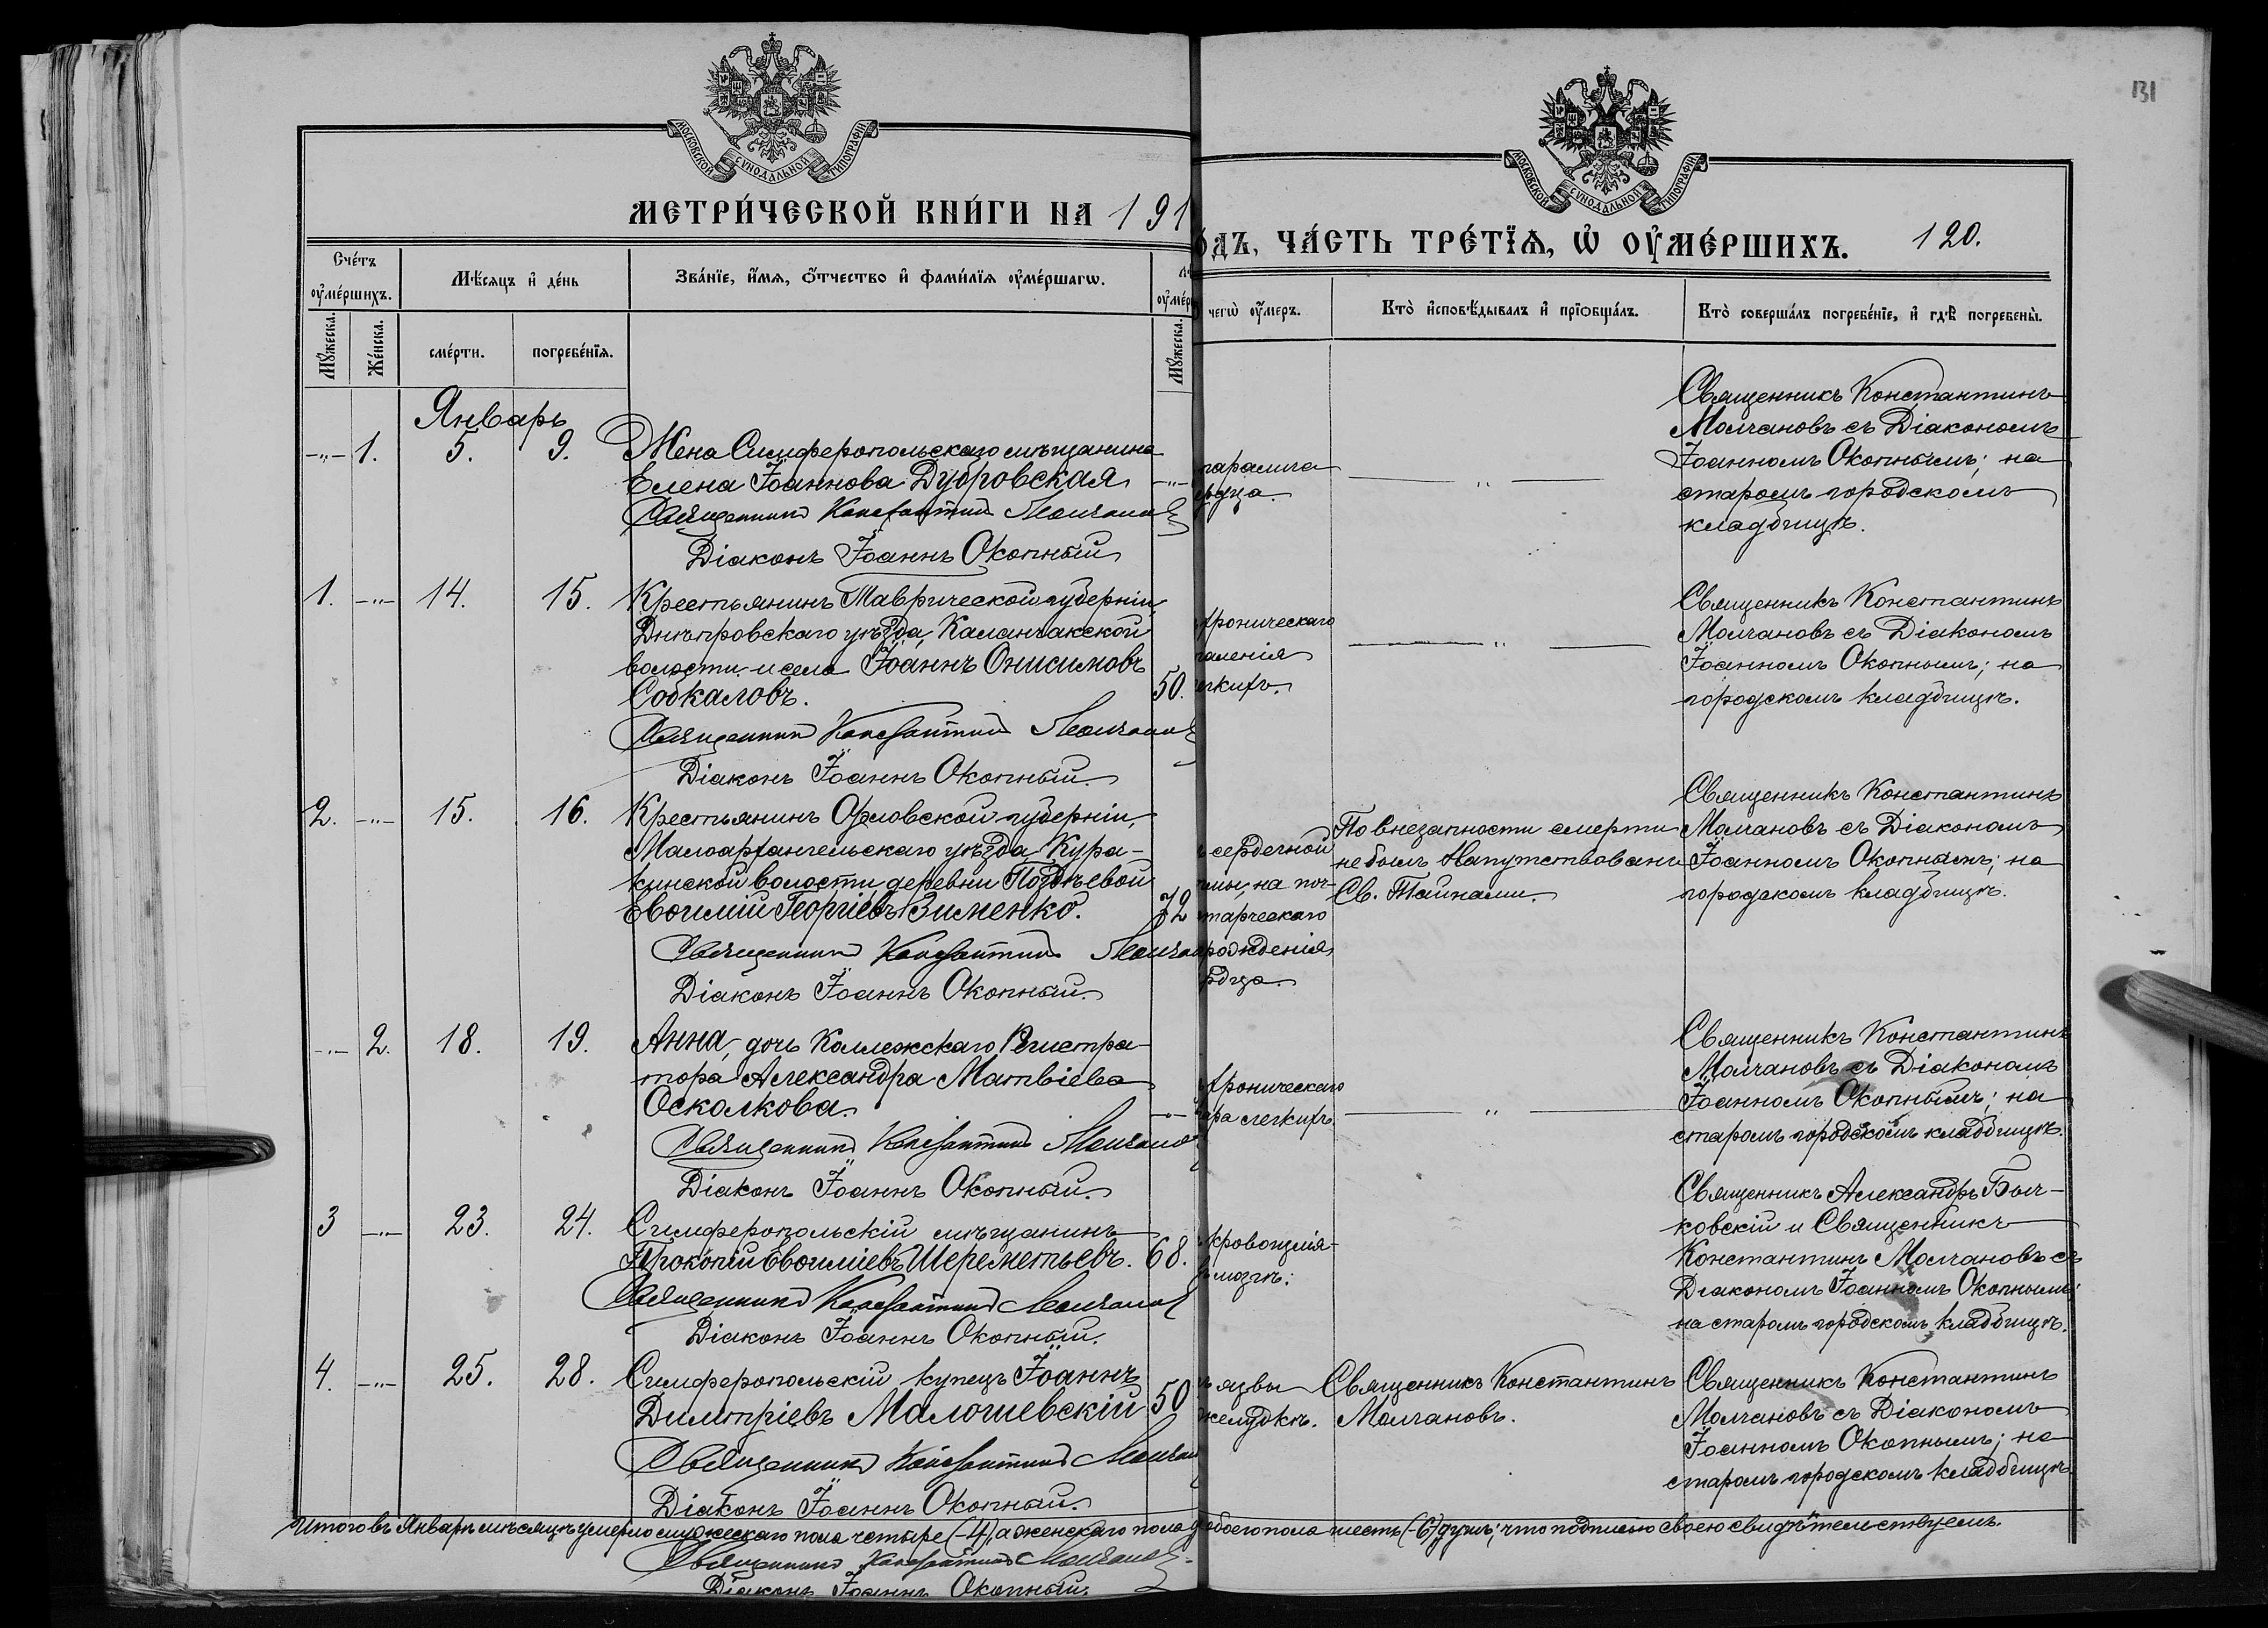 131
МОСКОВСКОЙ СУНОДАЛЬНОЙ ТИПОГРАФІИ
МОСКОВСКОЙ СУНОДАЛЬНОЙ ТИПОГРАФІИ
МЕТРИ́ЧЕСКОЙ КНИ́ГИ НА 191
О́ДЪ, ЧА́СТЬ ТРЕ́ТЇѦ, Ѡ҆ ОУ҆МЕ́РШИХЪ. 120.
Сче́тъ оу҆ме́ршихъ.
Мѣ́сяцъ и҆ де́нь
Зва́нїе, и҆́мѧ, ѻ҆́тчество и҆ фами́лїѧ оу҆ме́ршагѡ.
Мꙋ́жеска.
Же́нска.
сме́рти.
погребе́нїѧ.
Мꙋ́жеска.
чегѡ̀ оу҆́меръ.
Кто̀ и҆сповѣ́дывалъ и҆ прїѻбща́лъ.
Кто̀ соверша́лъ погребе́нїе, и҆ гдѣ̀ погребены̀.
Январь
-„- 1. 5. 9. Жена Симферопольскаго мѣщанина
Елена Іоаннова Дубровская -„-
Священникъ Константинъ Молчанов
Діаконъ Іоаннъ Окопный
паралича
рдца.
-„-
Священникъ Константинъ
Молчановъ съ Діакономъ
Іоанномъ Окопнымъ; на
старомъ городскомъ
кладбищѣ.
1. -„- 14. 15. Крестьянинъ Таврической губерніи,
Днѣпровскаго уѣзда, Каланчакской
волости и села Іоаннъ Онисимовъ
Собкаловъ. 50.
Священникъ Константинъ Молчанов
Діаконъ Іоаннъ Окопный.
хроническаго
паленія
егкихъ.
-„-
Священникъ Константинъ
Молчановъ съ Діакономъ
Іоанномъ Окопнымъ; на
городскомъ кладбищѣ.
2. -„- 15. 16. Крестьянинъ Орловской губерніи,
Малоархангельскаго уѣзда, Кура-
кинской волости, деревни Позднѣевой
Евѳимій Георгіевъ Зименко. 72
Священникъ Константинъ Молчан
Діаконъ Іоаннъ Окопный.
ъ сердечной
на поч-
старческаго
рожденія
рдца.
По внезапности смерти
не былъ Напутствованъ
Св. Тайнами.
Священникъ Константинъ
Молчановъ съ Діакономъ
Іоанномъ Окопнымъ; на
городскомъ кладбищѣ.
-„- 2. 18. 19. Анна, дочь Коллежскаго Регистра-
тора Александра Матвіева
Осколкова. -„-
Священникъ Константинъ Молчано
Діаконъ Іоаннъ Окопный.
хроническаго
ара легкихъ
-„-
Священникъ Константинъ
Молчановъ съ Діакономъ
Іоанномъ Окопнымъ; на
старомъ городскомъ кладбищѣ.
3 -„- 23. 24. Симферопольскій мѣщанинъ
Прокопій Евѳиміевъ Шереметьевъ. 68.
Священникъ Константинъ Молчанов
Діаконъ Іоаннъ Окопный.
кровоизлія-
мозгъ.
Священникъ Александръ Быч-
ковскій и Священникъ
Константинъ Молчановъ съ
Діакономъ Іоанномъ Окопнымъ;
на старомъ городскомъ кладбищѣ.
4. -„- 25. 28. Симферопольскій купецъ Іоаннъ
Димитріевъ Малошевскій 50
Священникъ Константинъ Молчан
Діаконъ Іоаннъ Окопный.
ъ язвы
желудкѣ.
Священникъ Константинъ
Молчановъ.
Священникъ Константинъ
Молчановъ съ Діакономъ
Іоанномъ Окопнымъ; на
старомъ городскомъ кладбищѣ.
Итого въ Январѣ мѣсяцѣ умерло мужескаго пола четыре (-4), а женскаго пола обоего пола шесть (-6) душъ; что подписью своею свидѣтельствуемъ.
Священникъ Константинъ Молчановъ.
Діаконъ Іоаннъ Окопный.